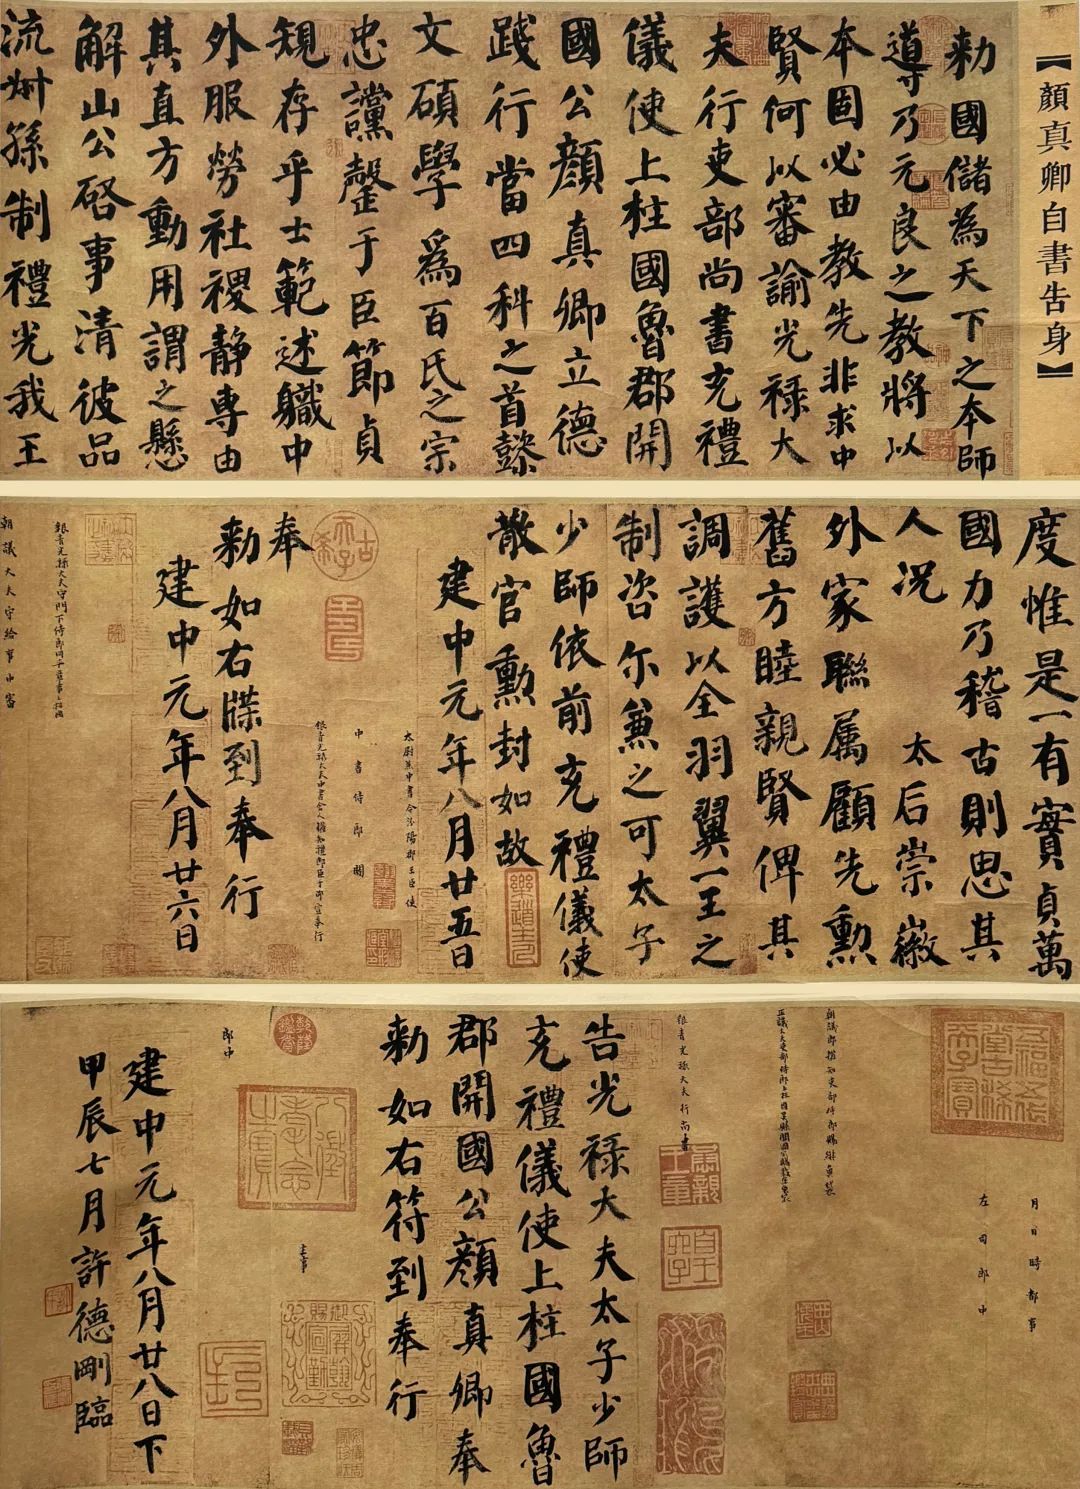 【顏真卿自書告身】
勑國儲為天下之本師
導乃元良之教將以
本固必由教先非求中
賢何以審諭光禄大
夫行吏部尚書充禮
儀使上柱國魯郡開
國公顏真卿立德
踐行當四科之首懿
文碩學為百氏之宗
忠讜罄于臣節貞
規存乎士範述職中
外服勞社稷静專由
其直方動用謂之懸
解山公啓事清彼品
流叔孫制禮光我王
度惟是一有實貞萬
國力乃稽古則思其
人況 太后崇徽
外家聯属顧先勳
舊方睦親賢俾其
調護以全羽翼一王之
制咨尔兼之可太子
少師依前充禮儀使
散官勳封如故
建中元年八月廿五日
太尉兼中書令汾陽郡王臣使
中書侍郎闕
銀青光禄大夫中書舍人權知禮部臣于邵宣奉行
奉
勑如右牒到奉行
建中元年八月廿六日
銀青光禄大夫守門下侍郎同平章事上柱國
朝議大夫守給事中審
月日時都事
左司郎中
朝議郎權知吏部侍郎賜緋魚袋
正議大夫吏部侍郎上柱國
銀青光禄大夫行尚書
告光禄大夫太子少師
充禮儀使上柱國魯
郡開國公顏真卿奉
勑如右符到奉行
主事
郎中
建中元年八月廿八日下
甲辰七月許德剛臨